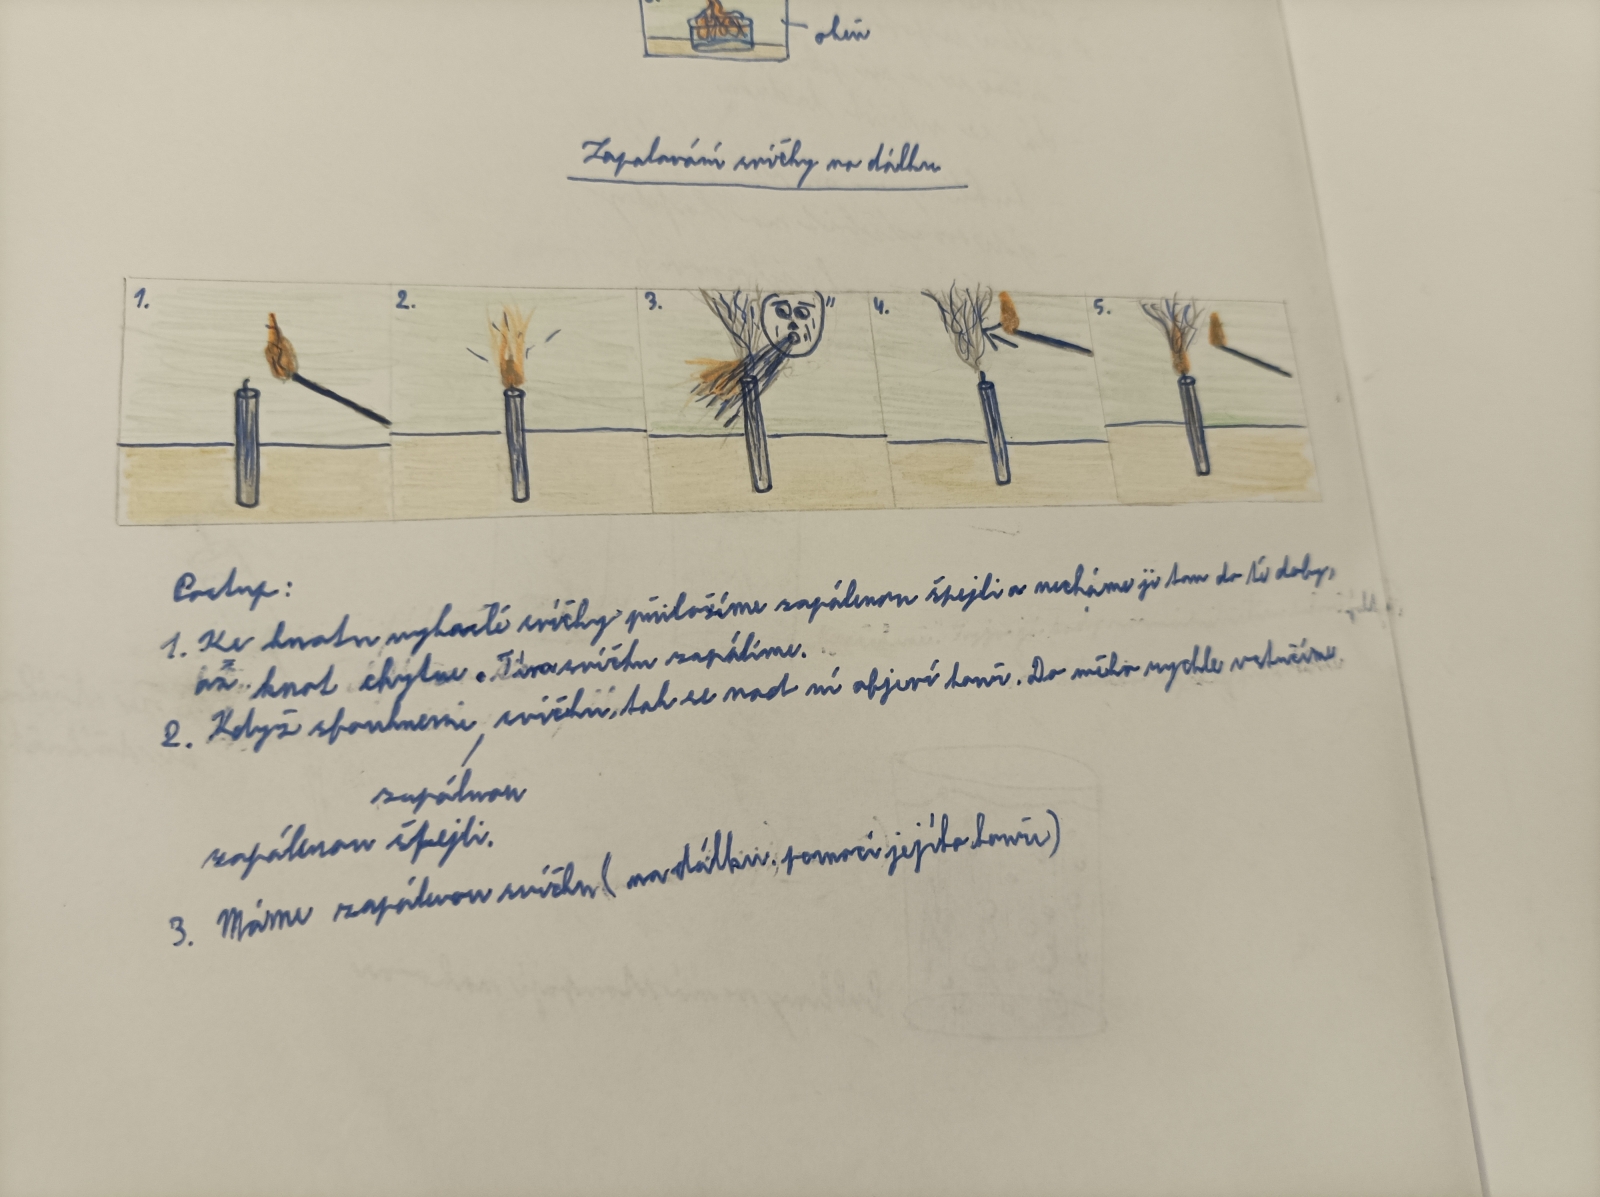 oheň
Zapalování svíčky na dálku
1.
2.
3.
"
4.
5.
Postup:
1. Ke knotu vyhaslé svíčky přiložíme zapálenou špejli a necháme ji tam do té doby,
až knot chytne. Tím svíčku zapálíme.
2. Když sfoukneme svíčku, tak se nad ní objeví kouř. Do něho rychle vstrčíme
zapálenou
zapálenou špejli.
3. Máme zapálenou svíčku (na dálku, pomocí jejího kouře)